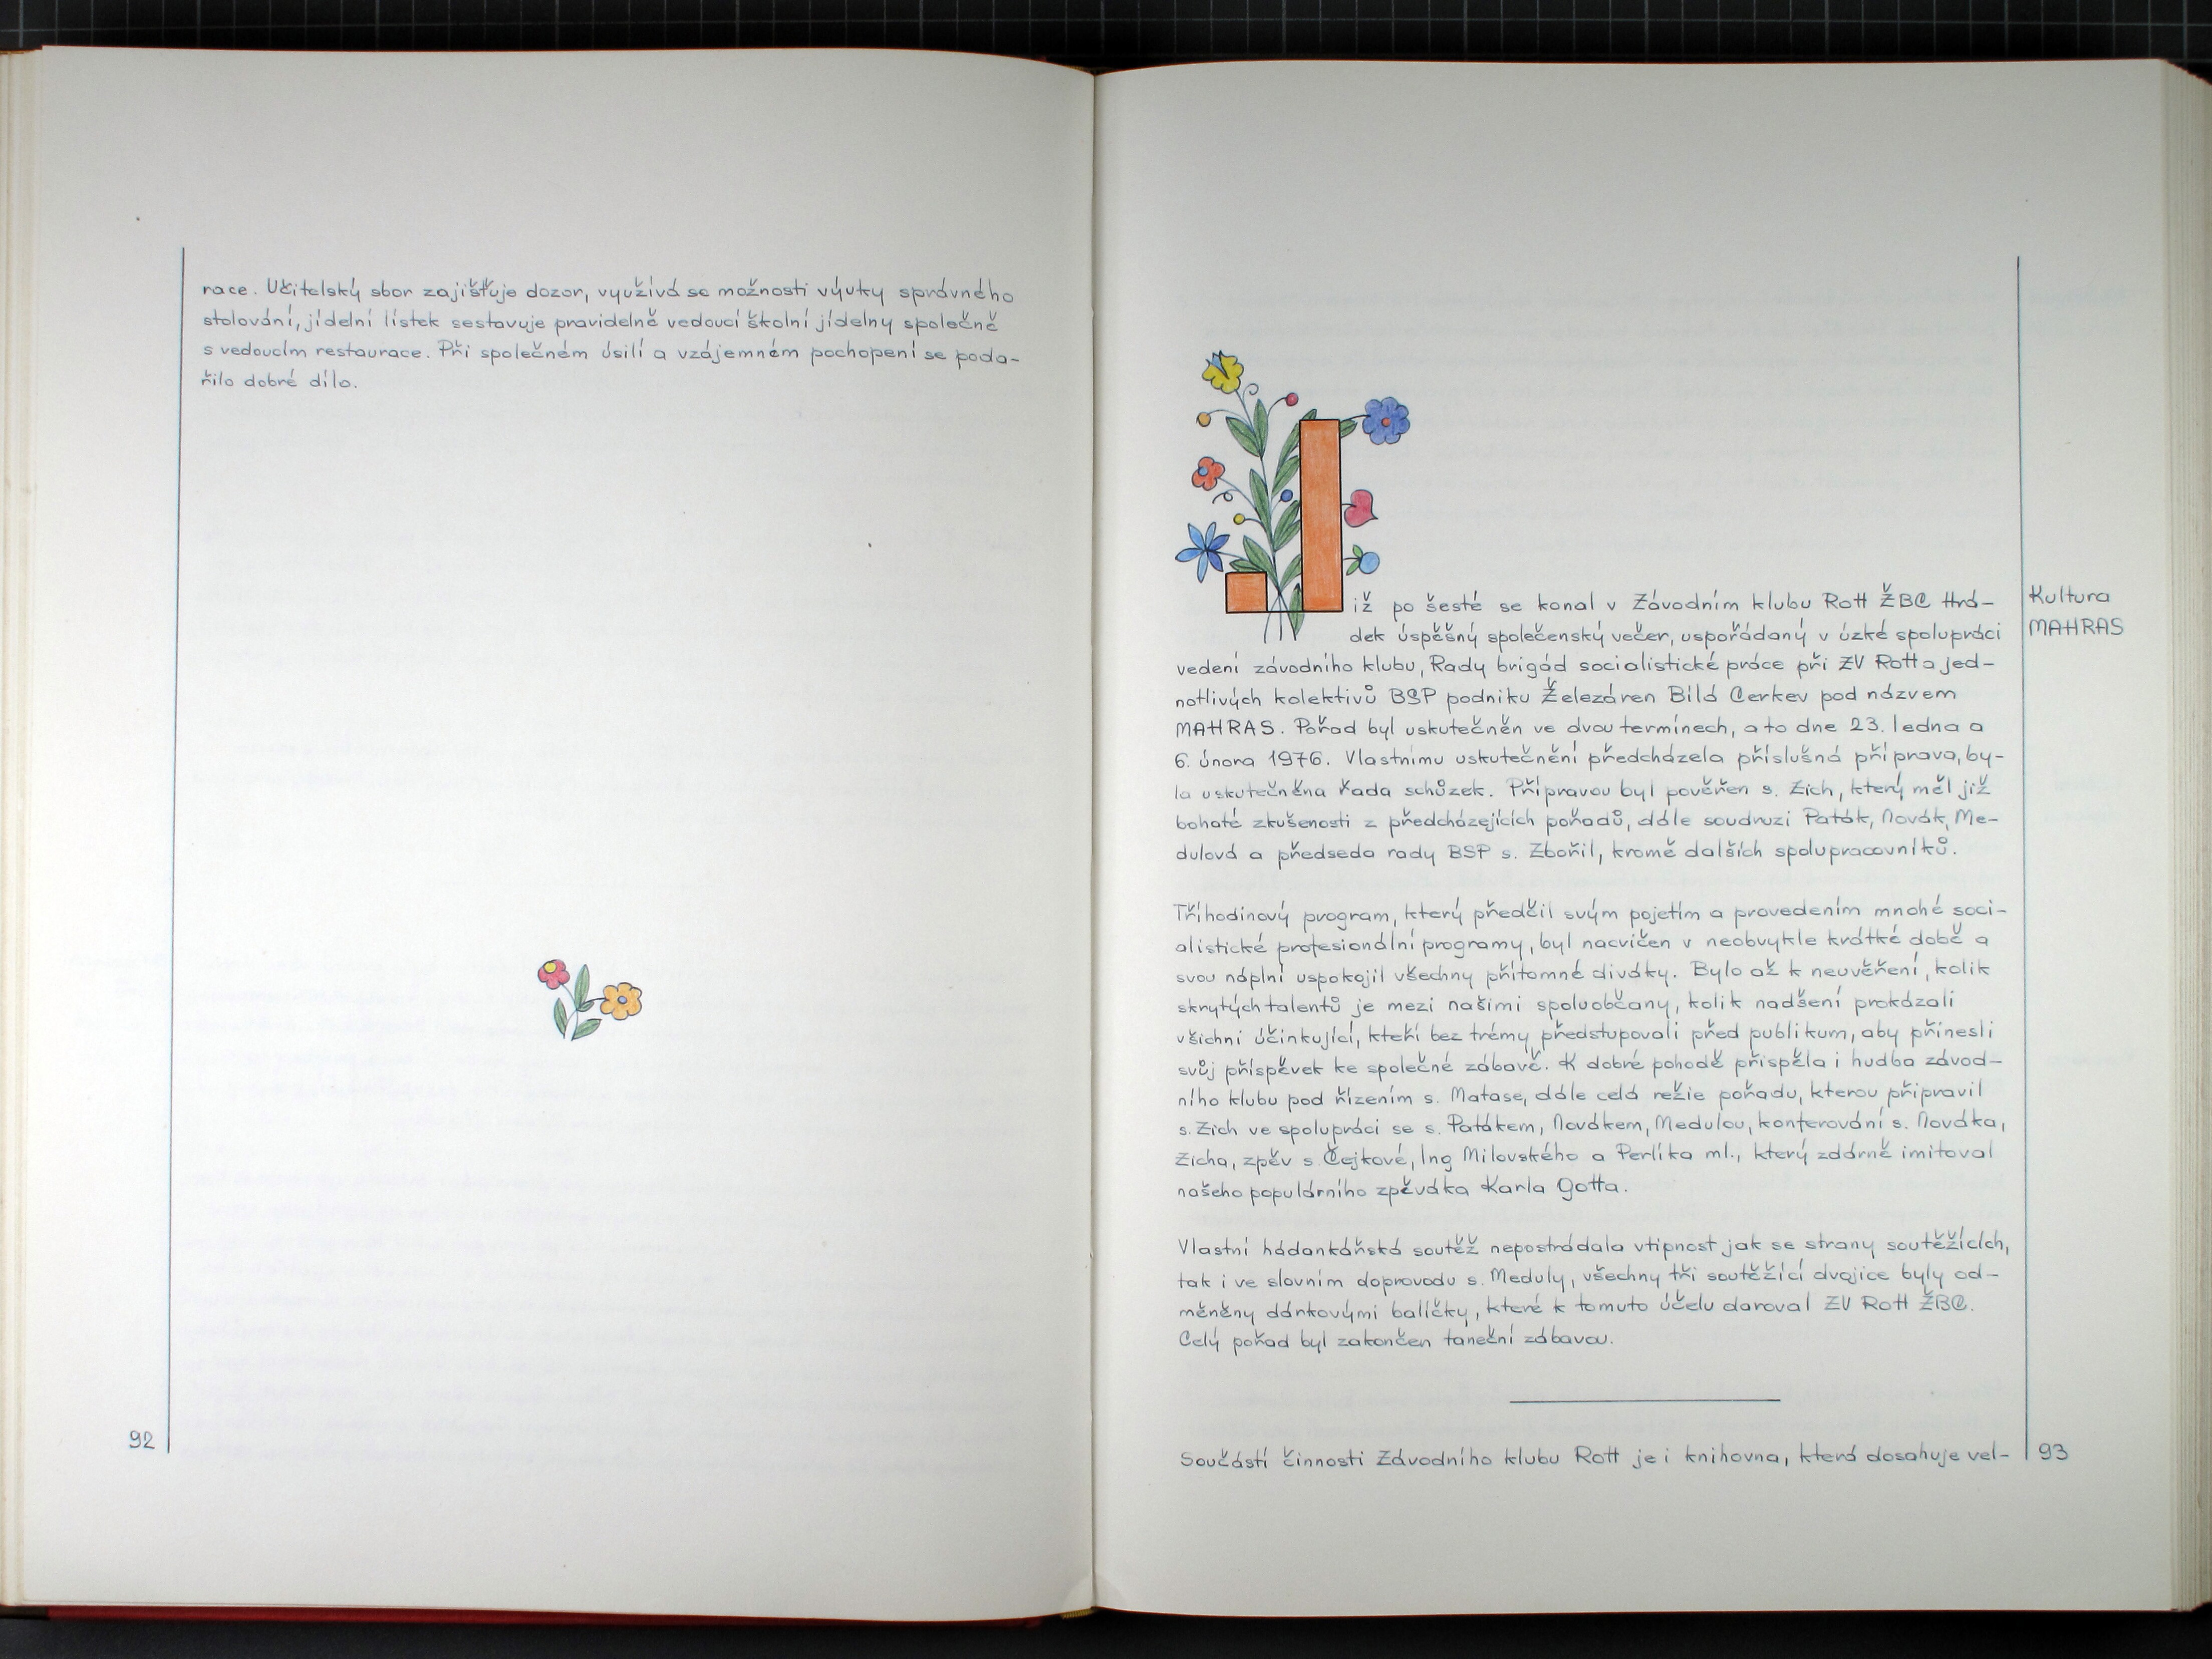 race. Učitelský sbor zajišťuje dozor, využívá se možnosti výuky správného
stolování, jídelní lístek sestavuje pravidelně vedoucí školní jídelny společně
s vedoucím restaurace. Při společném úsilí a vzájemném pochopení se poda-
řilo dobré dílo.
92
Již po šesté se konal v Závodním klubu Rott ŽBC Hrá-
dek úspěšný společenský večer, uspořádaný v úzké spolupráci
vedení závodního klubu, Rady brigád socialistické práce při ZV Rott a jed-
notlivých kolektivů BSP podniku Železáren Bílá Cerkev pod názvem
MAHRAS. Pořad byl uskutečněn ve dvou termínech, a to dne 23. ledna a
6. února 1976. Vlastnímu uskutečnění předcházela příslušná příprava, by-
la uskutečněna řada schůzek. Přípravou byl pověřen s. Zich, který měl již
bohaté zkušenosti z předcházejících pořadů, dále soudruzi Paták, Novák, Me-
dulová a předseda rady BSP s. Zbořil, kromě dalších spolupracovníků.
Kultura
MAHRAS
Tříhodinový program, který předčil svým pojetím a provedením mnohé soci-
alistické profesionální programy, byl nacvičen v neobvykle krátké době a
svou náplní uspokojil všechny přítomné diváky. Bylo až k neuvěření, kolik
skrytých talentů je mezi našimi spoluobčany, kolik nadšení prokázali
všichni účinkující, kteří bez trémy předstupovali před publikum, aby přinesli
svůj příspěvek ke společné zábavě. K dobré pohodě přispěla i hudba závod-
ního klubu pod řízením s. Matase, dále celá režie pořadu, kterou připravil
s. Zich ve spolupráci se s. Patákem, Novákem, Medulou, konferování s. Nováka,
Zicha, zpěv s. Čejkové, Ing Milovského a Perlíka ml., který zdárně imitoval
našeho populárního zpěváka Karla Gotta.
Vlastní hádankářská soutěž nepostrádala vtipnost jak se strany soutěžících,
tak i ve slovním doprovodu s. Meduly, všechny tři soutěžící dvojice byly od-
měněny dárkovými balíčky, které k tomuto účelu daroval ZV Rott ŽBC.
Celý pořad byl zakončen taneční zábavou.
Součástí činnosti Závodního klubu Rott je i knihovna, která dosahuje vel-
93